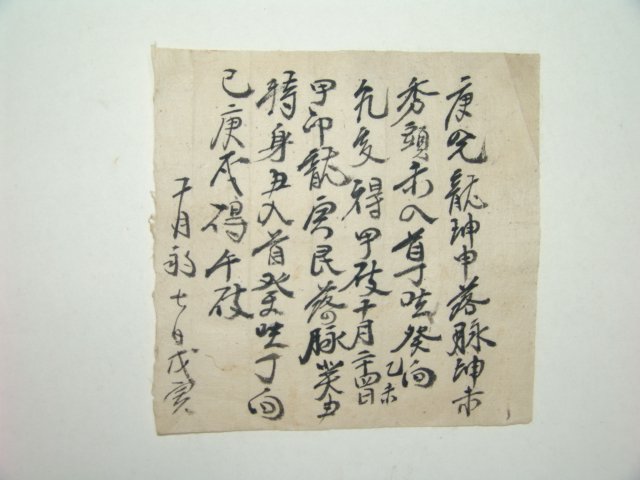 庚兌龍坤申落脉坤未
秀頭未入首丁坐癸向
乾亥得甲破十月二十四日乙未
甲卯龍寅艮落脉癸丑
轉身丑入首癸坐丁向
巳庚 得午破
十月初七日戊寅